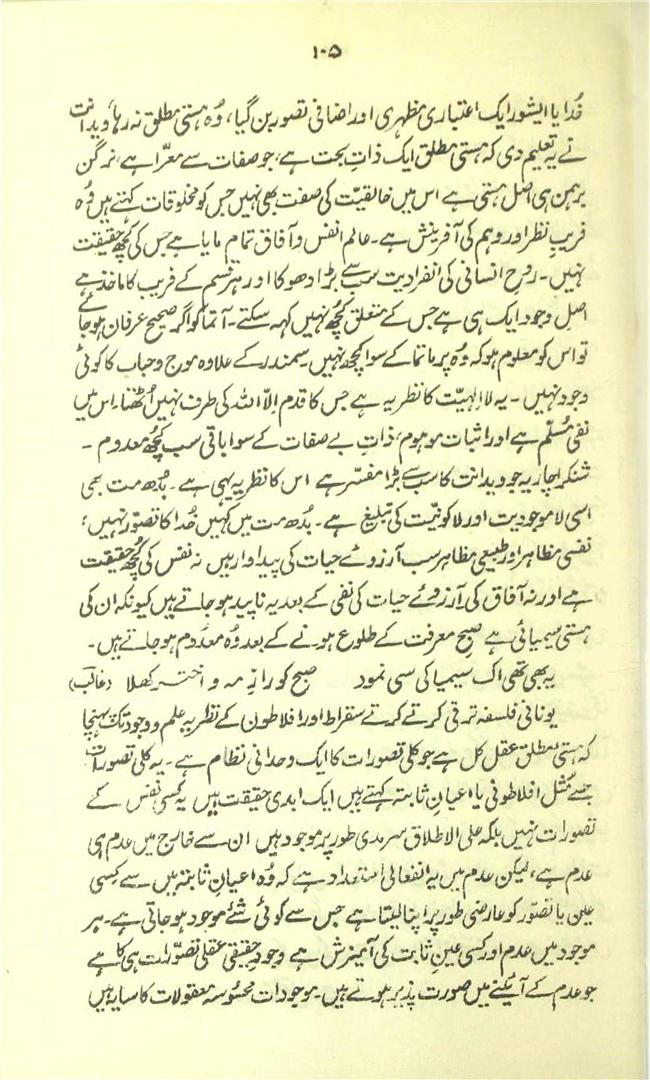 ۱۰۵
خُدا یا ایشور ایک اعتباری مظہری اور اضافی تصور بن گیا، وُہ ہستیِ مطلق نہ رہا، ویدانت
نے یہ تعلیم دی کہ ہستیِ مطلق ایک ذاتِ بحت ہے، جو صفات سے معرّا ہے، نرگُن
برہمن ہی اصل ہستی ہے اس میں خالقیّت کی صفت بھی نہیں جس کو مخلوقات کہتے ہیں وُہ
فریبِ نظر اور وہم کی آفرینش ہے۔ عالمِ انفس و آفاق تمام مایا ہے جس کی کچھ حقیقت
نہیں۔ روحِ انسانی کی انفرادیت سب سے بڑا دھوکا اور ہر قسم کے فریب کا ماخذ ہے
اصل وجود ایک ہی ہے جس کے متعلق کچھ نہیں کہہ سکتے۔ آتما کو اگر صحیح عرفان ہو جائے
تو اس کو معلوم ہو کہ وُہ پرماتما کے سوا کچھ نہیں۔ سمندر کے علاوہ موج و حباب کا کوئی
وجود نہیں۔ یہ لا الٰہیّت کا نظریہ ہے جس کا قدم اِلّا اللہ کی طرف نہیں اُٹھتا۔ اس میں
نفی مسلّم ہے اور اثبات موہوم، ذاتِ بے صفات کے سوا باقی سب کچھ معدوم۔
شنکر اچاریہ جو ویدانت کا سب سے بڑا مفسّر ہے اس کا نظریہ یہی ہے۔ بُدھ مت بھی
اسی لاموجودیت اور لاکونیّت کی تبلیغ ہے۔ بدُھ مت میں کہیں خُدا کا تصوّر نہیں؛
نفسی مظاہر اور طبیعی مظاہر سب آرزوئے حیات کی پیداوار ہیں نہ نفس کی کچھ حقیقت
ہے اور نہ آفاق کی۔ آرزوئے حیات کی نفی کے بعد یہ ناپید ہو جاتے ہیں کیونکہ ان کی
ہستی سیمیائی ہے صبحِ معرفت کے طلوع ہونے کے بعد وُہ معدُوم ہو جاتے ہیں۔
یہ بھی تھی اک سیمیا کی سی نمود صبح کو رازِ مہ و اختر کھلا (غالبؔ)
یونانی فلسفہ ترقی کرتے کرتے سقراط اور افلاطون کے نظریہ علم و وجود تک پہنچا
کہ ہستیِ مطلق عقلِ کل ہے جو کلی تصورات کا ایک وحدانی نظام ہے۔ یہ کلی تصورات
جسے مُثلِ افلاطونی یا اعیانِ ثابتہ کہتے ہیں ایک ابدی حقیقت ہیں یہ کسی نفس کے
تصورات نہیں بلکہ علی الاطلاق سرمدی طور پر موجود ہیں ان سے خارج میں عدم ہی
عدم ہے، لیکن عدم میں یہ انفعالی استعداد ہے کہ وُہ اعیانِ ثابتہ میں سے کسی
عین یا تصوّر کو عارضی طور پر اپنا لیتا ہے جس سے کوئی شئے موجود ہو جاتی ہے۔ ہر
موجود میں عدم اور کسی عینِ ثابت کی آمیزش ہے وجودِ حقیقی عقلی تصوّرات ہی کا ہے
جو عدم کے آئینے میں صورت پذیر ہوتے ہیں۔ موجودات محسُوسہ معقولات کا سایہ ہیں